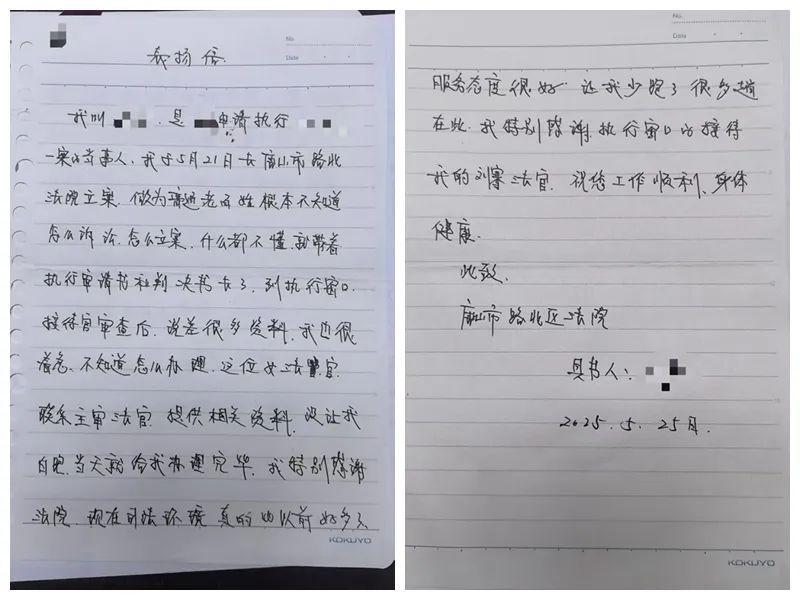 No.
Date
表扬信
我叫 . 是 申请执行
一案的当事人, 我于5月21日去唐山市路北
法院立案, 做为普通老百姓根本不知道
怎么诉讼, 怎么立案, 什么都不懂, 就带着
执行申请书和判决书去了, 到执行窗口,
接待官审查后, 说差很多资料, 我也很
着急, 不知道怎么办理, 这位女法官
联系主审法官, 提供相关资料, 没让我
白跑, 当天就给我办理完毕, 我特别感谢
法院, 现在司法环境真的比以前好多了
KOKUYO
No.
Date
服务态度很好 让我少跑了很多趟
在此, 我特别感谢执行窗口的接待
我的刘寀法官. 祝您工作顺利、身体
健康.
此致.
唐山市路北区法院
具书人:
2025.5.25日.
KOKUYO